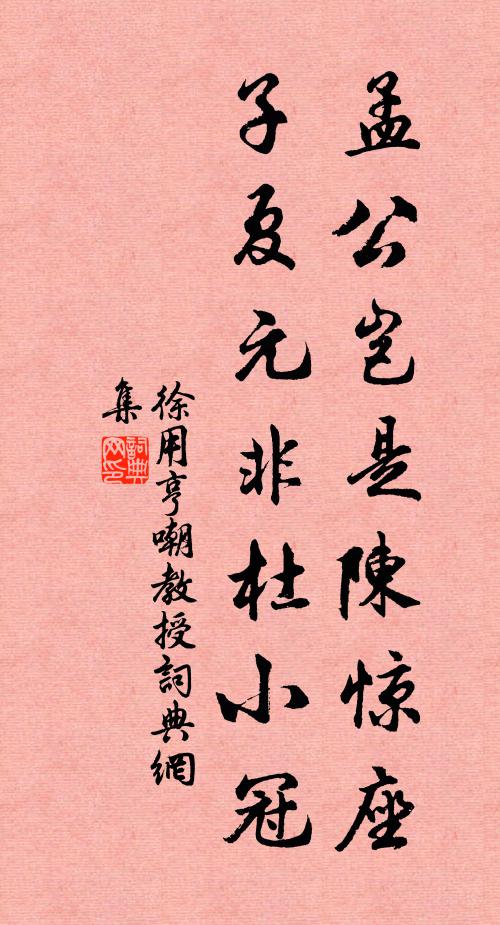 孟公岂是陳惊座
子夏元非杜小冠
徐用亨嘲教授詞典網
集
詞典
网印